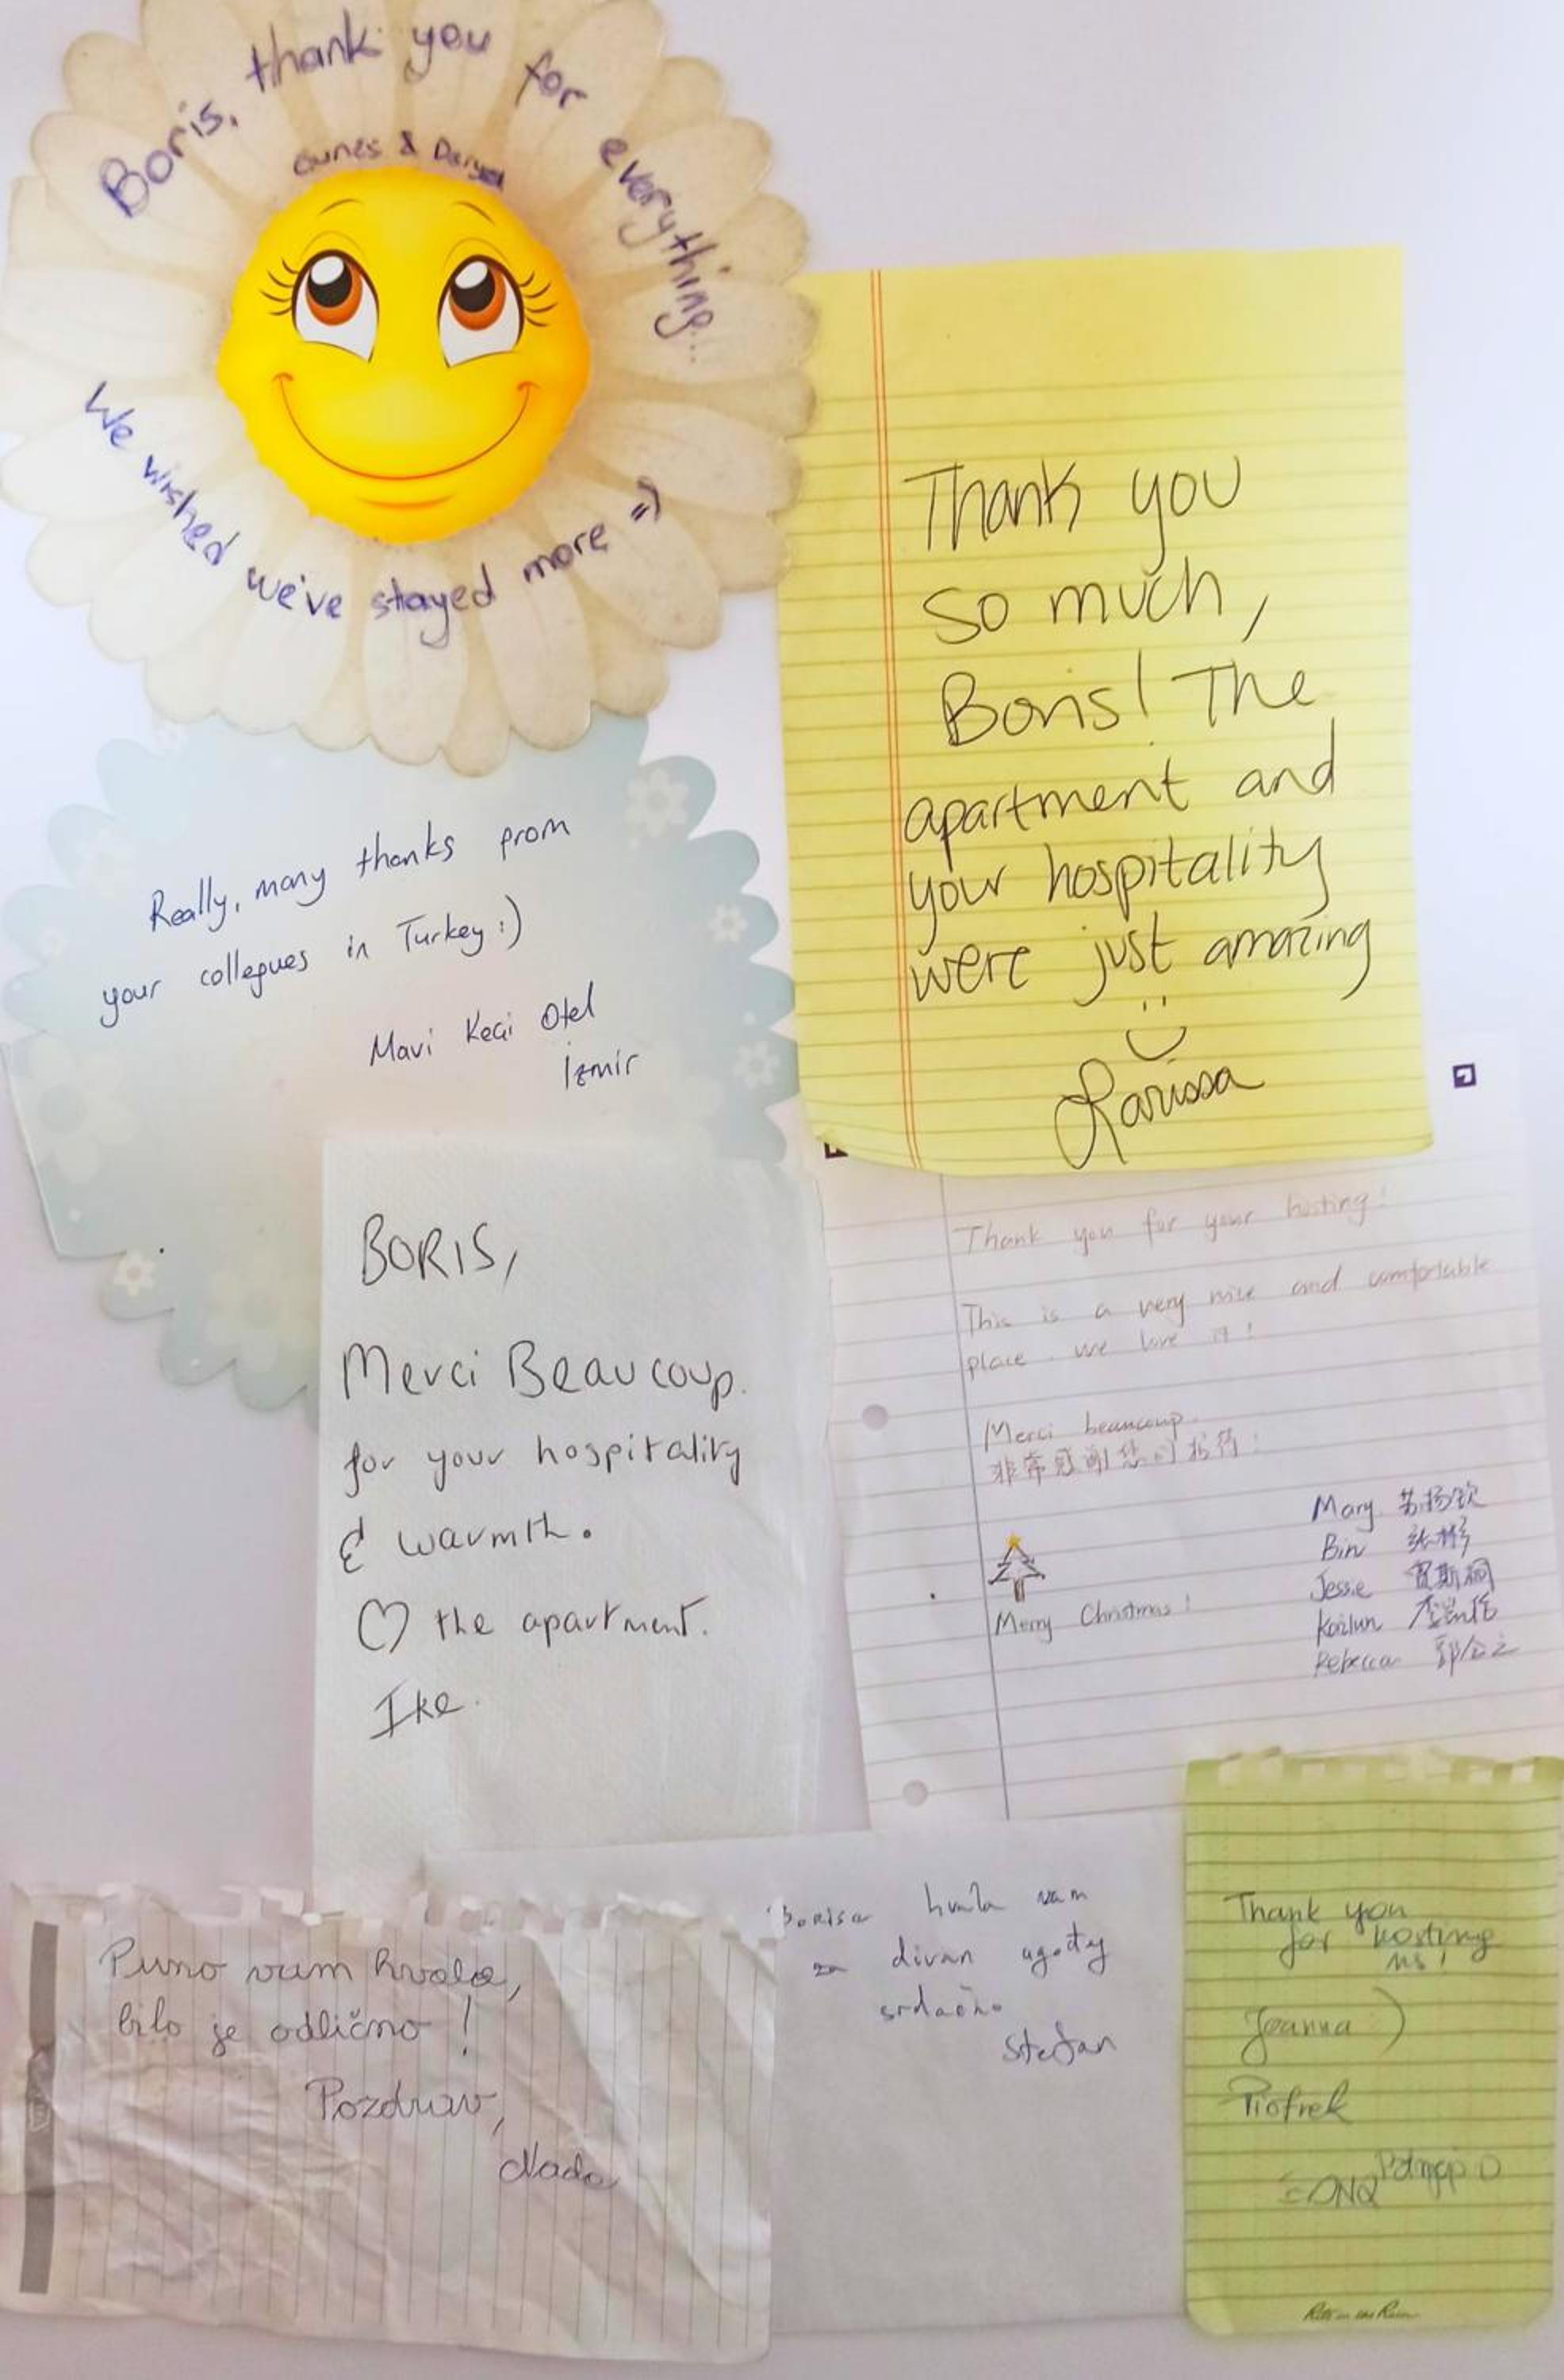 Boris, thank you for everything...
Gunes & Derya
We wished we've stayed more =)
Really, many thanks from
your collegues in Turkey :)
Mavi Keçi Otel
İzmir
Thank you
so much,
Boris! The
apartment and
your hospitality
were just amazing
Larissa
BORIS,
Merci Beaucoup.
for your hospitality
& warmth.
♡ the apartment.
Ike.
Thank you for your hosting!
This is a very nice and comfortable
place. we love it!
Merci beaucoup.
非常感谢您的招待!
Merry Christmas!
Mary 苏扬钦
Bin 张彬
Jessie 贾斯桐
Kailun
Rebecca
Puno vam hvala,
bilo je odlično!
Pozdrav,
Nada
hvala vam
za divan
srdačno
Stefan
Thank you
for hosting
us!
Joanna
Piotrek
Rite in the Rain